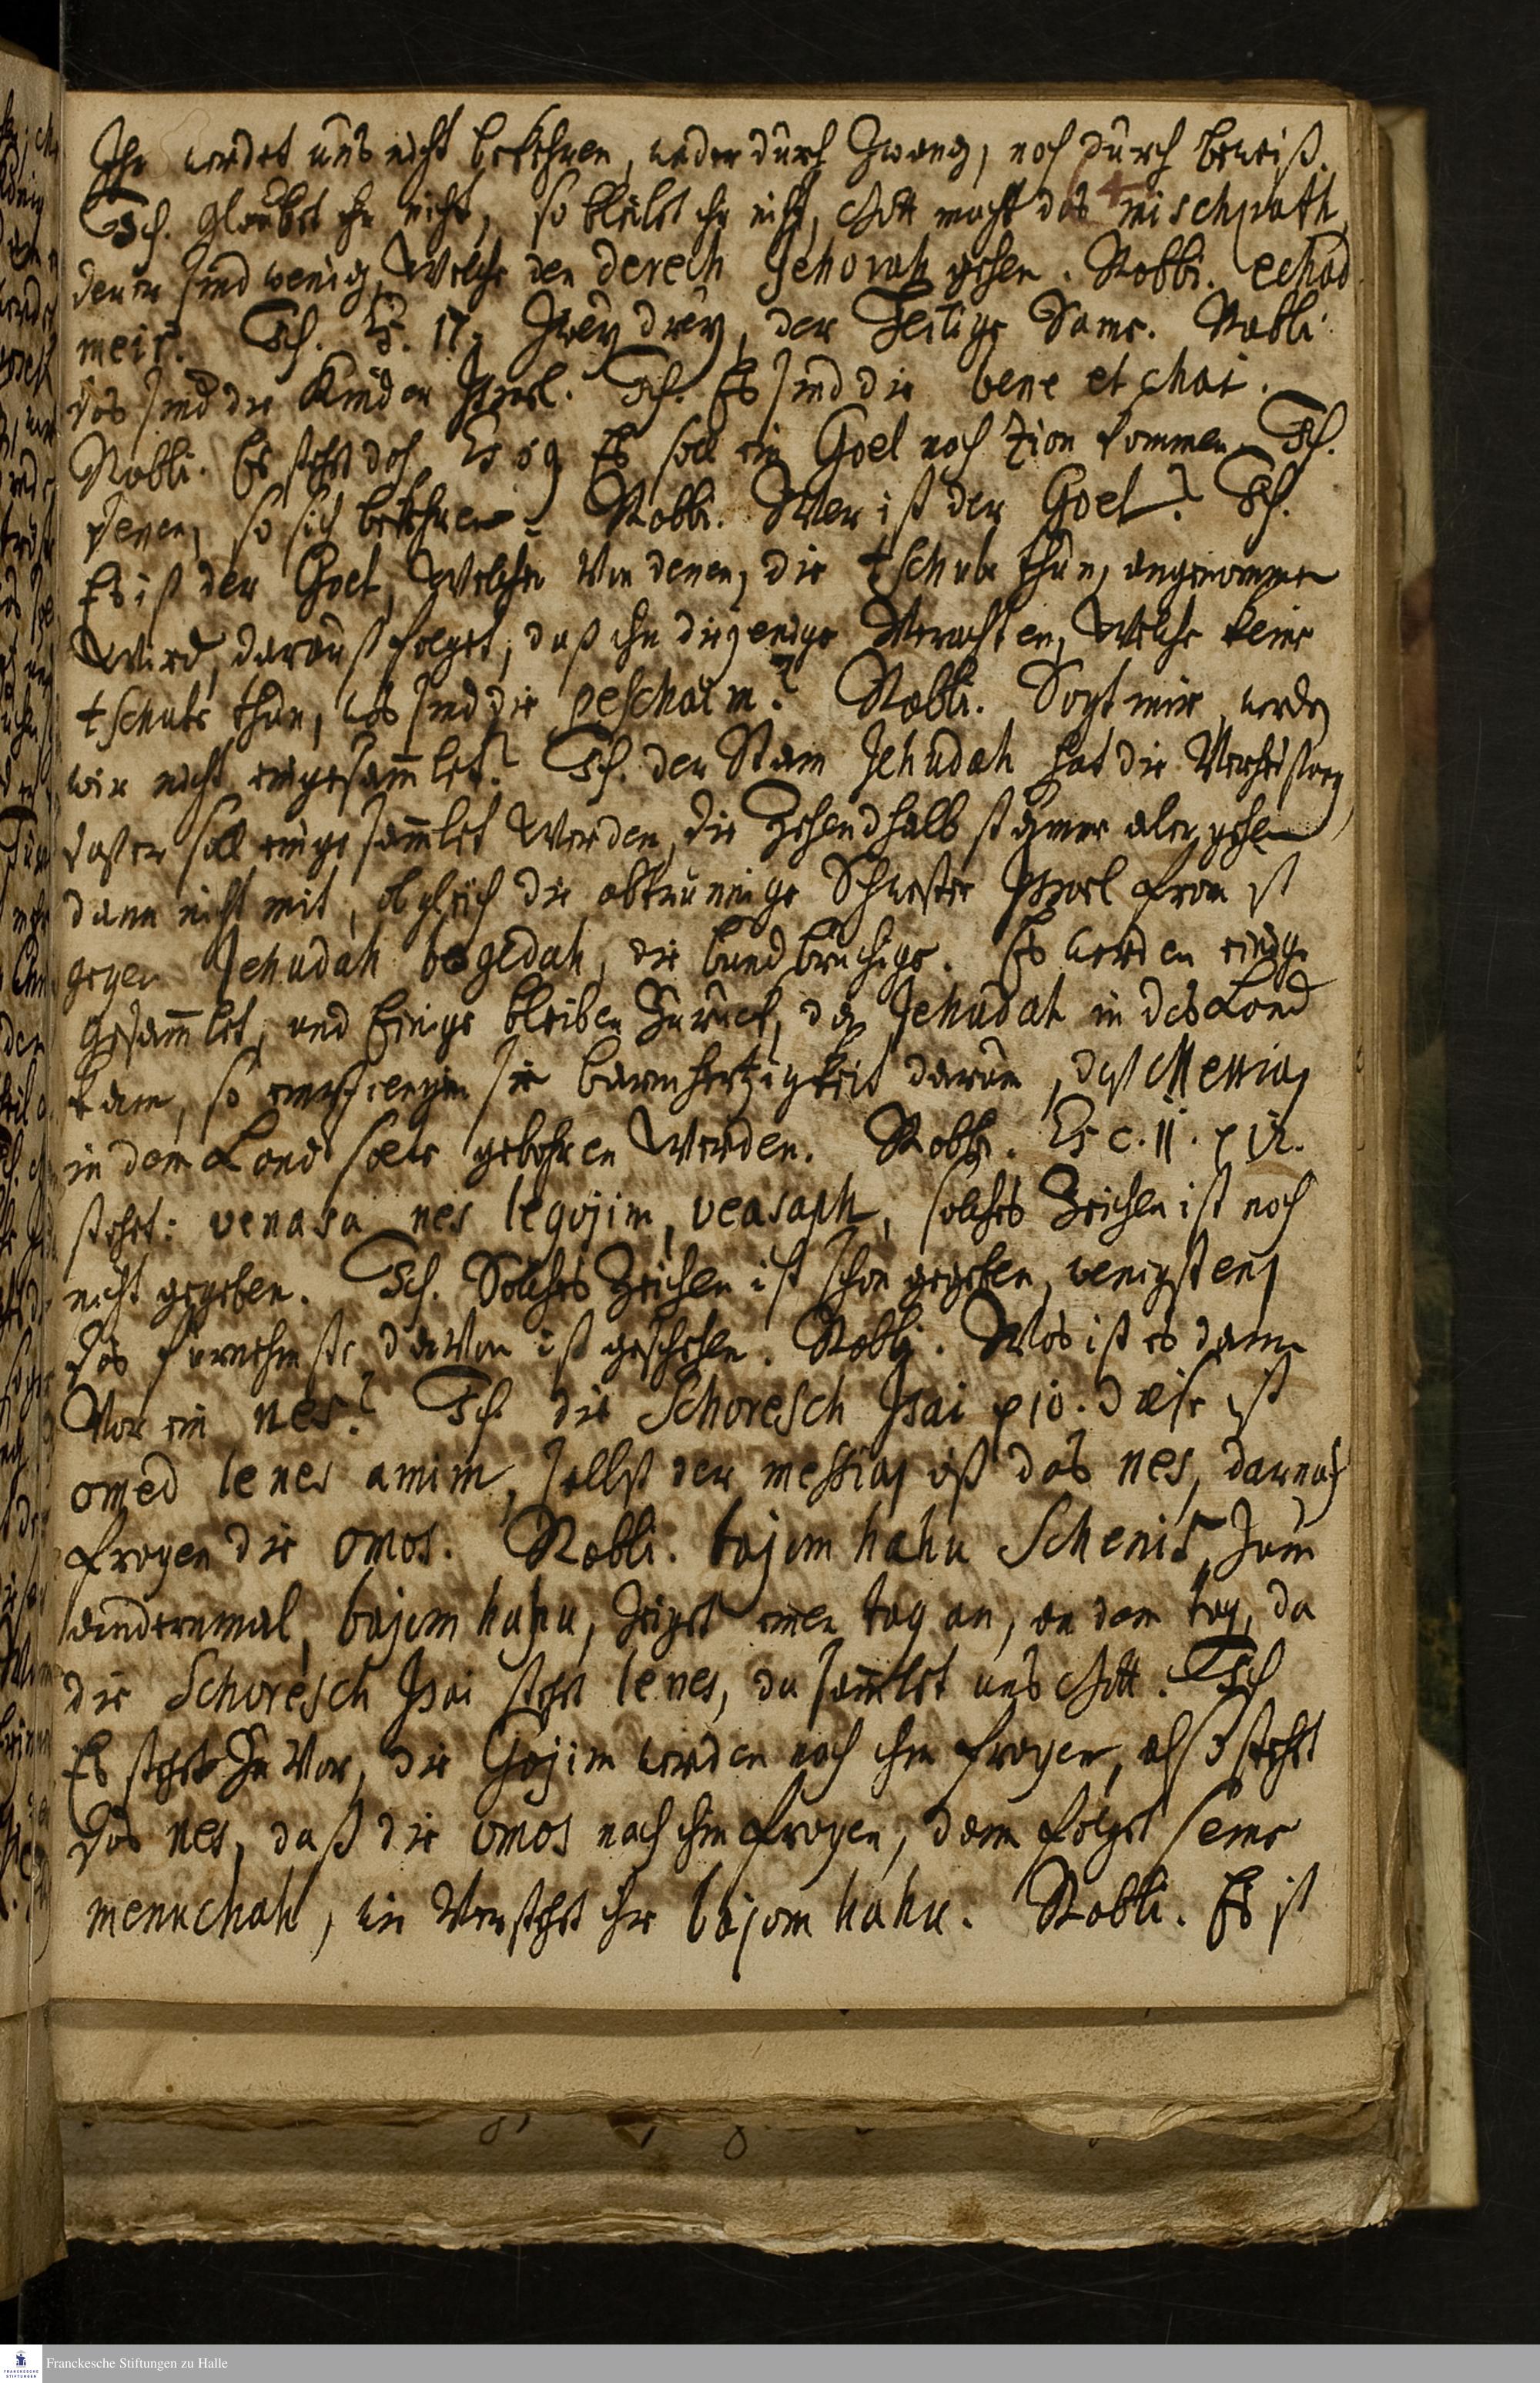 Ihr werdet uns nicht bekehren, weder durch Zwang, noch durch beweiß.
Ich. glaubet ihr nicht, so bleibet ihr nicht, Gott macht das mischpath,
4
deren sind wenig, Welche den derech Jehovah gehen. Rabbi. echad
meir. Ich. Es. 17. Zwey drey, der Heilige Same. Rabbi
das sind die Kinder Israel. Ich. Es sind die bene el chai.
Rabbi. Es steht doch Es 59 Es soll ein Goel nach Zion kommen. Ich.
denen, so sich bekehren. Rabbi. Wer ist der Goel? Ich.
Es ist der Goel, Welcher Von denen, die tschube thun, angenommen
Wird, darauß folget, daß ihn diejenige Verachten, Welche keine
tschube thun, was sind die peschaim? Rabbi. Sagt mir, werden
wir nicht eingesamlet? Ich. der Stam Jehudah hat die Verheisung
daß er soll eingesamlet Werden, die Zehendhalb stämme aber gehen
dann nicht mit, obgleich die abtrünnige Schwester Israel from ist
gegen Jehudah bogedah, die bundbrüchige. Es werden einige
gesamlet, und Einige bleiben Zurück, da Jehudah in das Land
kam, so empfiengen sie barmhertzigkeit darum, daß Messias
in dem Land solte gebohren Werden. Rabbi. Es c. 11. p 12.
stehet: venasa nes legojim, veasaph, solches Zeichen ist noch
nicht gegeben. Ich. Solches Zeichen ist schon gegeben, wenigstens
das fürnehmste davon ist geschehen. Rabbi. Was ist es dann
Vor ein nes? Ich. die Schoresch Isai p 10. diese ist
omed lenes amim, selbst der messias ist das nes, darnach
fragen die omos. Rabbi. bajom hahu Schenis, Zum
andernmal, bajom hahu, Zeiget einen tag an, an dem tag, da
die Schoresch Isai steht lenes, da samlet uns Gott. Ich
Es stehet Zu Vor, die Gojim werden nach ihm fragen, also stehet
das nes, daß die omos nach ihm fragen, dann folget seine
menuchah, wie Verstehet ihr bajom hahu. Rabbi. Es ist
Franckesche Stiftungen zu Halle